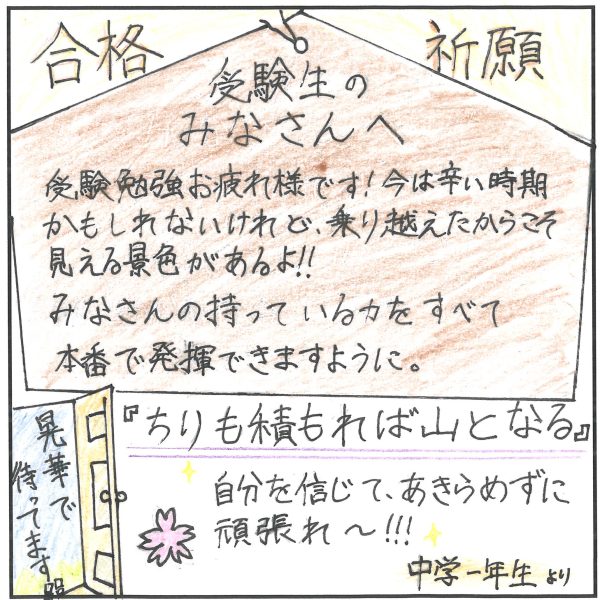 合格 祈願
受験生の
みなさんへ
受験勉強お疲れ様です!今は辛い時期
かもしれないけれど、乗り越えたからこそ
見える景色があるよ!!
みなさんの持っている力をすべて
本番で発揮できますように。
『ちりも積もれば山となる』
自分を信じて、あきらめずに
頑張れ～!!!
晃華で
待ってます
中学一年生より